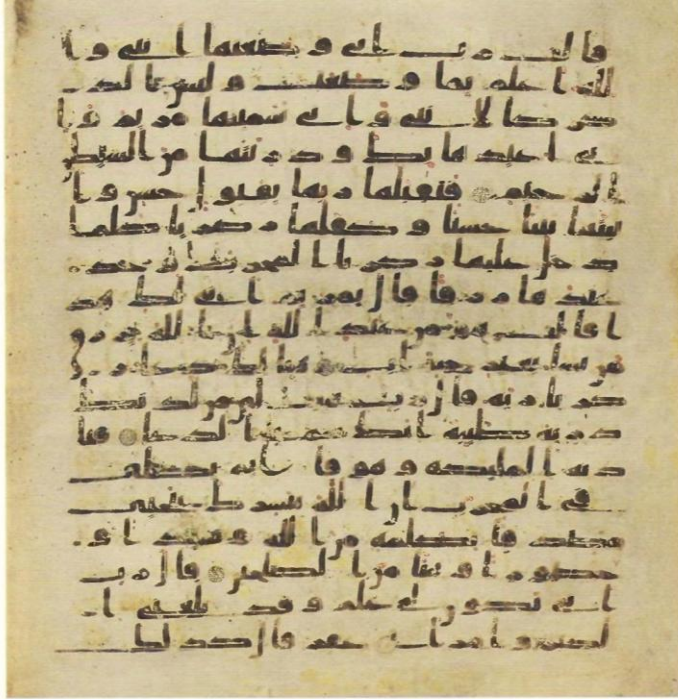 قالت رب انى وضعتها انثى وا
لله اعلم بما وضعت وليس الذ
كر كالانثى وانى سميتها مريم وا
نى اعيذها بك وذريتها من الشيطن
الرجيم فتقبلها ربها بقبول حسن وا
نبتها نبتا حسنا وكفلها زكريا كلما
دخل عليها زكريا المحرب وجد
عندها رزقا قال يمريم انى لك هذ
ا قالت هو من عند الله ان الله يرز
ق من يشا بغير حساب هنالك دعا ز
كريا ربه قال رب هب لى من لدنك
ذرية طيبة انك سميع الدعا فنا
دته الملئكة وهو قائم يصلى
فى المحرب ان الله يبشرك بيحيى
مصدقا بكلمة من الله وسيدا و
حصورا ونبيا من الصلحين قال رب
انى يكون لى غلم وقد بلغنى ا
لكبر وامراتى عاقر قال كذلك ا